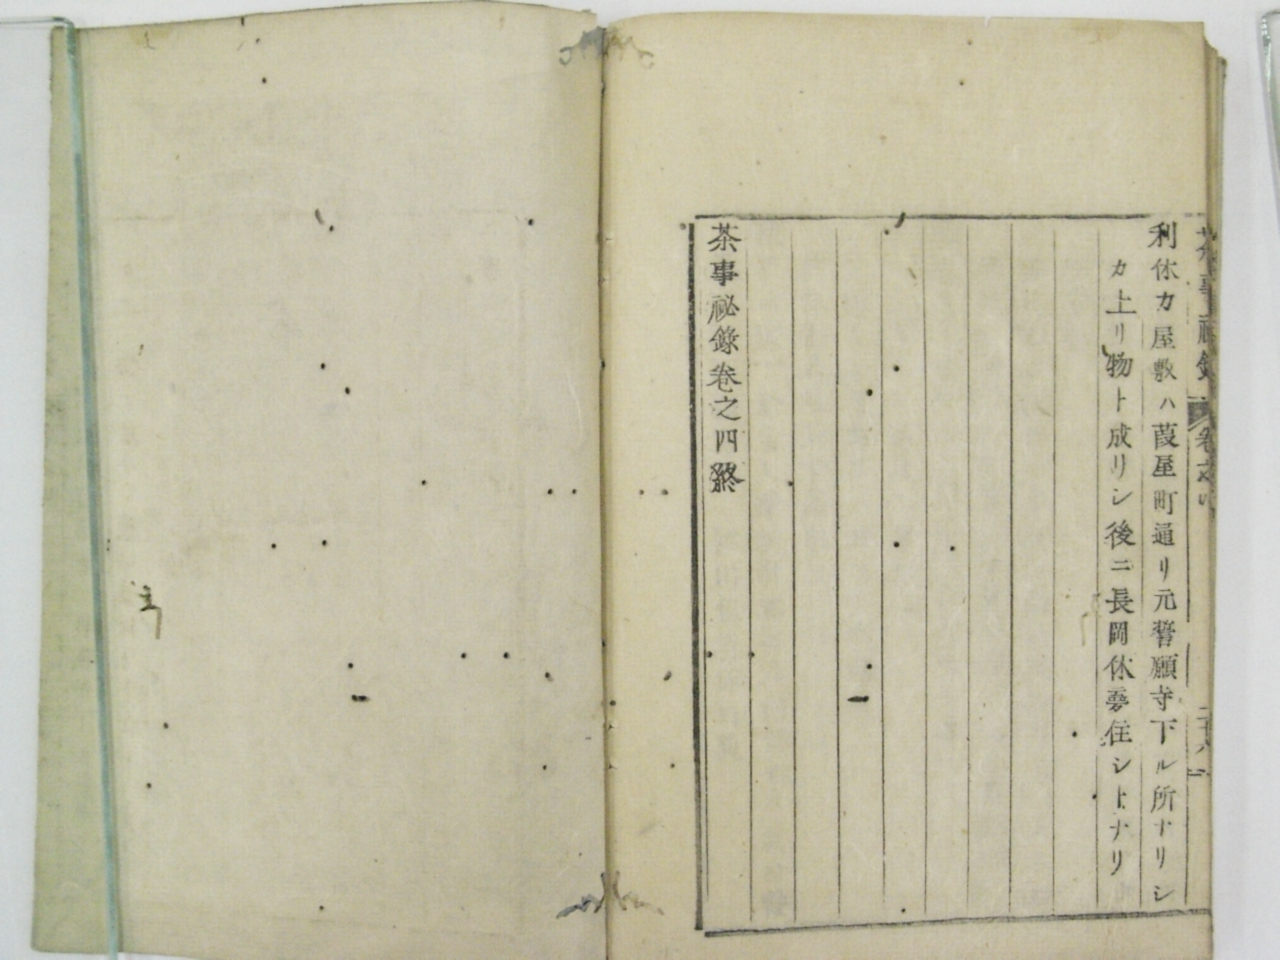 茶事祕錄 卷之四 二十八
利休カ屋敷ハ葭屋町通リ元誓願寺下ル所ナリシ
カ上リ物ト成リシ後ニ長岡休夢住シトナリ
茶事祕錄卷之四終